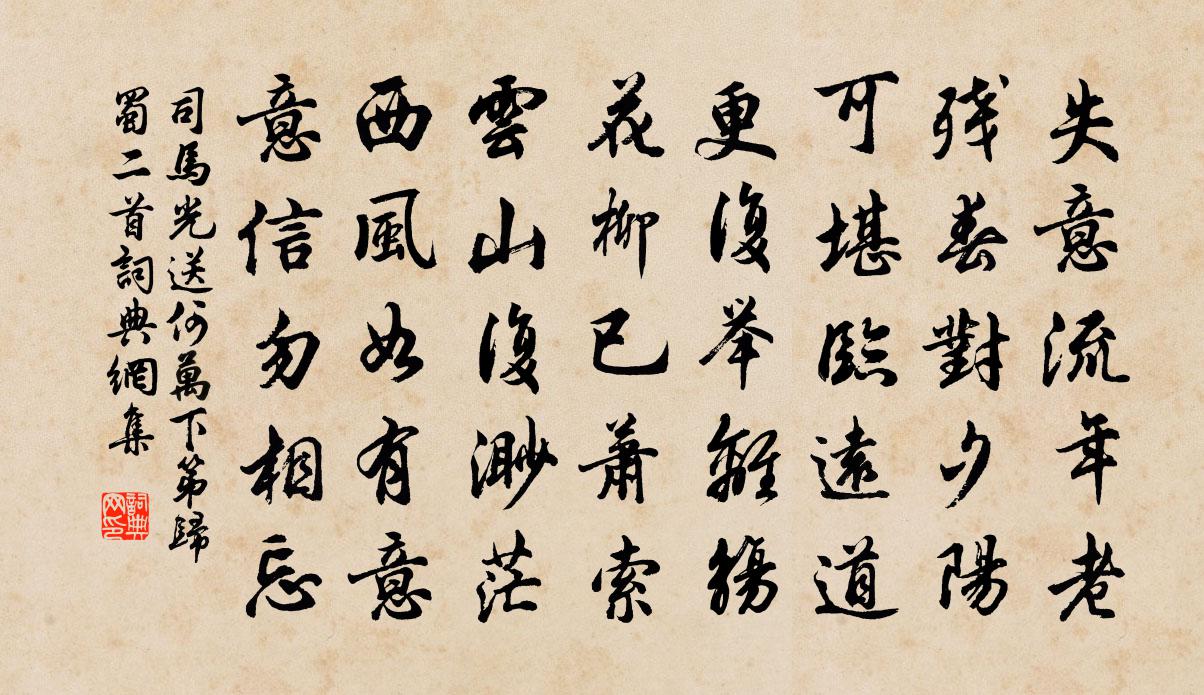 失意流年老
残春對夕陽
可堪臨遠道
更復举離觴
花柳已蕭索
雲山復渺茫
西風如有意
意信勿相忘
司馬光送何萬下第歸
蜀二首詞典網集
詞典
网印